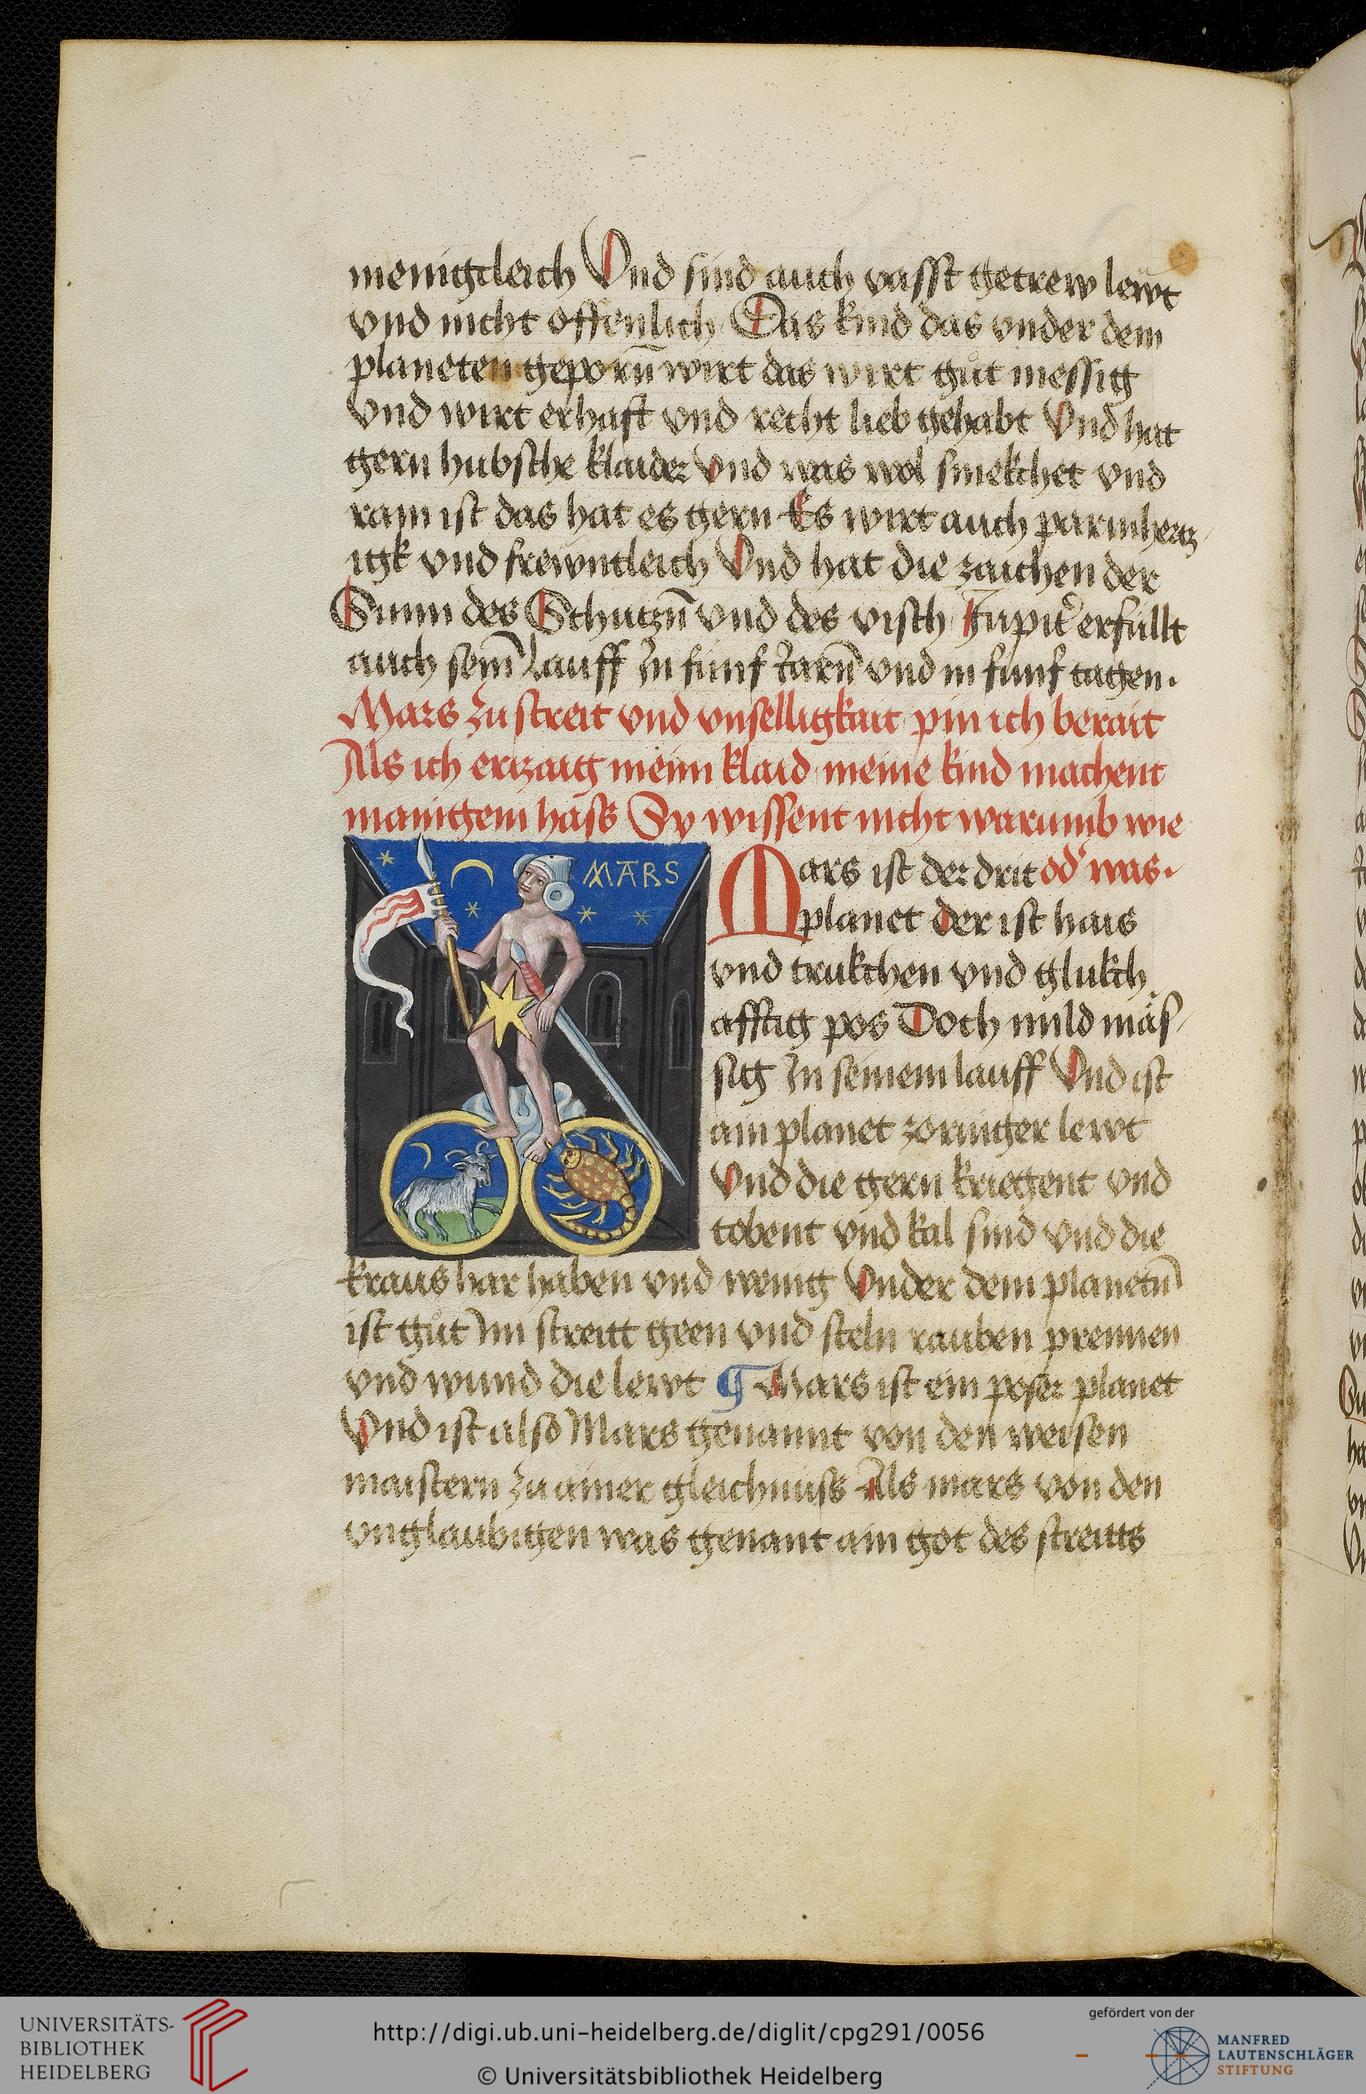 menigcleich Vnd sind auch vasst getrew lewt
vnd nicht offenlich Das kind das vnder dem
planeten geporn̄ wirt das wirt gůt messig
vnd wirt erhaft vnd recht lieb gehabt Vnd hat
gern hubsche klaider vnd was wol smekchet vnd
rain ist das hat es gern Es wirt auch parmhertz
igk vnd frewntleich Vnd hat die zaichen der
Sunn des Schutzn̄ vnd des visch Jupit̾ erfullt
auch sein̄ lauff In funf Iarn̄ vnd in funf tagen.
Mars zu streit vnd vnselligkait pin ich berait
Als ich ertzaig mein klaid meine kind machent
manigem hass Sy wissent nicht warumb wie
MARS
Mars ist der drit od̾ was.
planet der ist hais
vnd trukchen vnd glukch
afftig pos Doch mild mäs
sig In seinem lauff Vnd ist
ain planet zorniger lewt
Vnd die gern kriegent vnd
tobent vnd kal sind vnd die
kraus har haben vnd wenig Vnder dem planetn̄
ist gůt Im streitt geen vnd steln rauben prennen
vnd wund die lewt ¶ Mars ist ein poser planet
Vnd ist also Mars genannt von den weisen
maistern zu ainer gleichnuss Als mars von den
vnglaubigen was genant ain got des streitts
UNIVERSITÄTS-
BIBLIOTHEK
HEIDELBERG
http://digi.ub.uni-heidelberg.de/diglit/cpg291/0056
© Universitätsbibliothek Heidelberg
gefördert von der
MANFRED
LAUTENSCHLÄGER
STIFTUNG